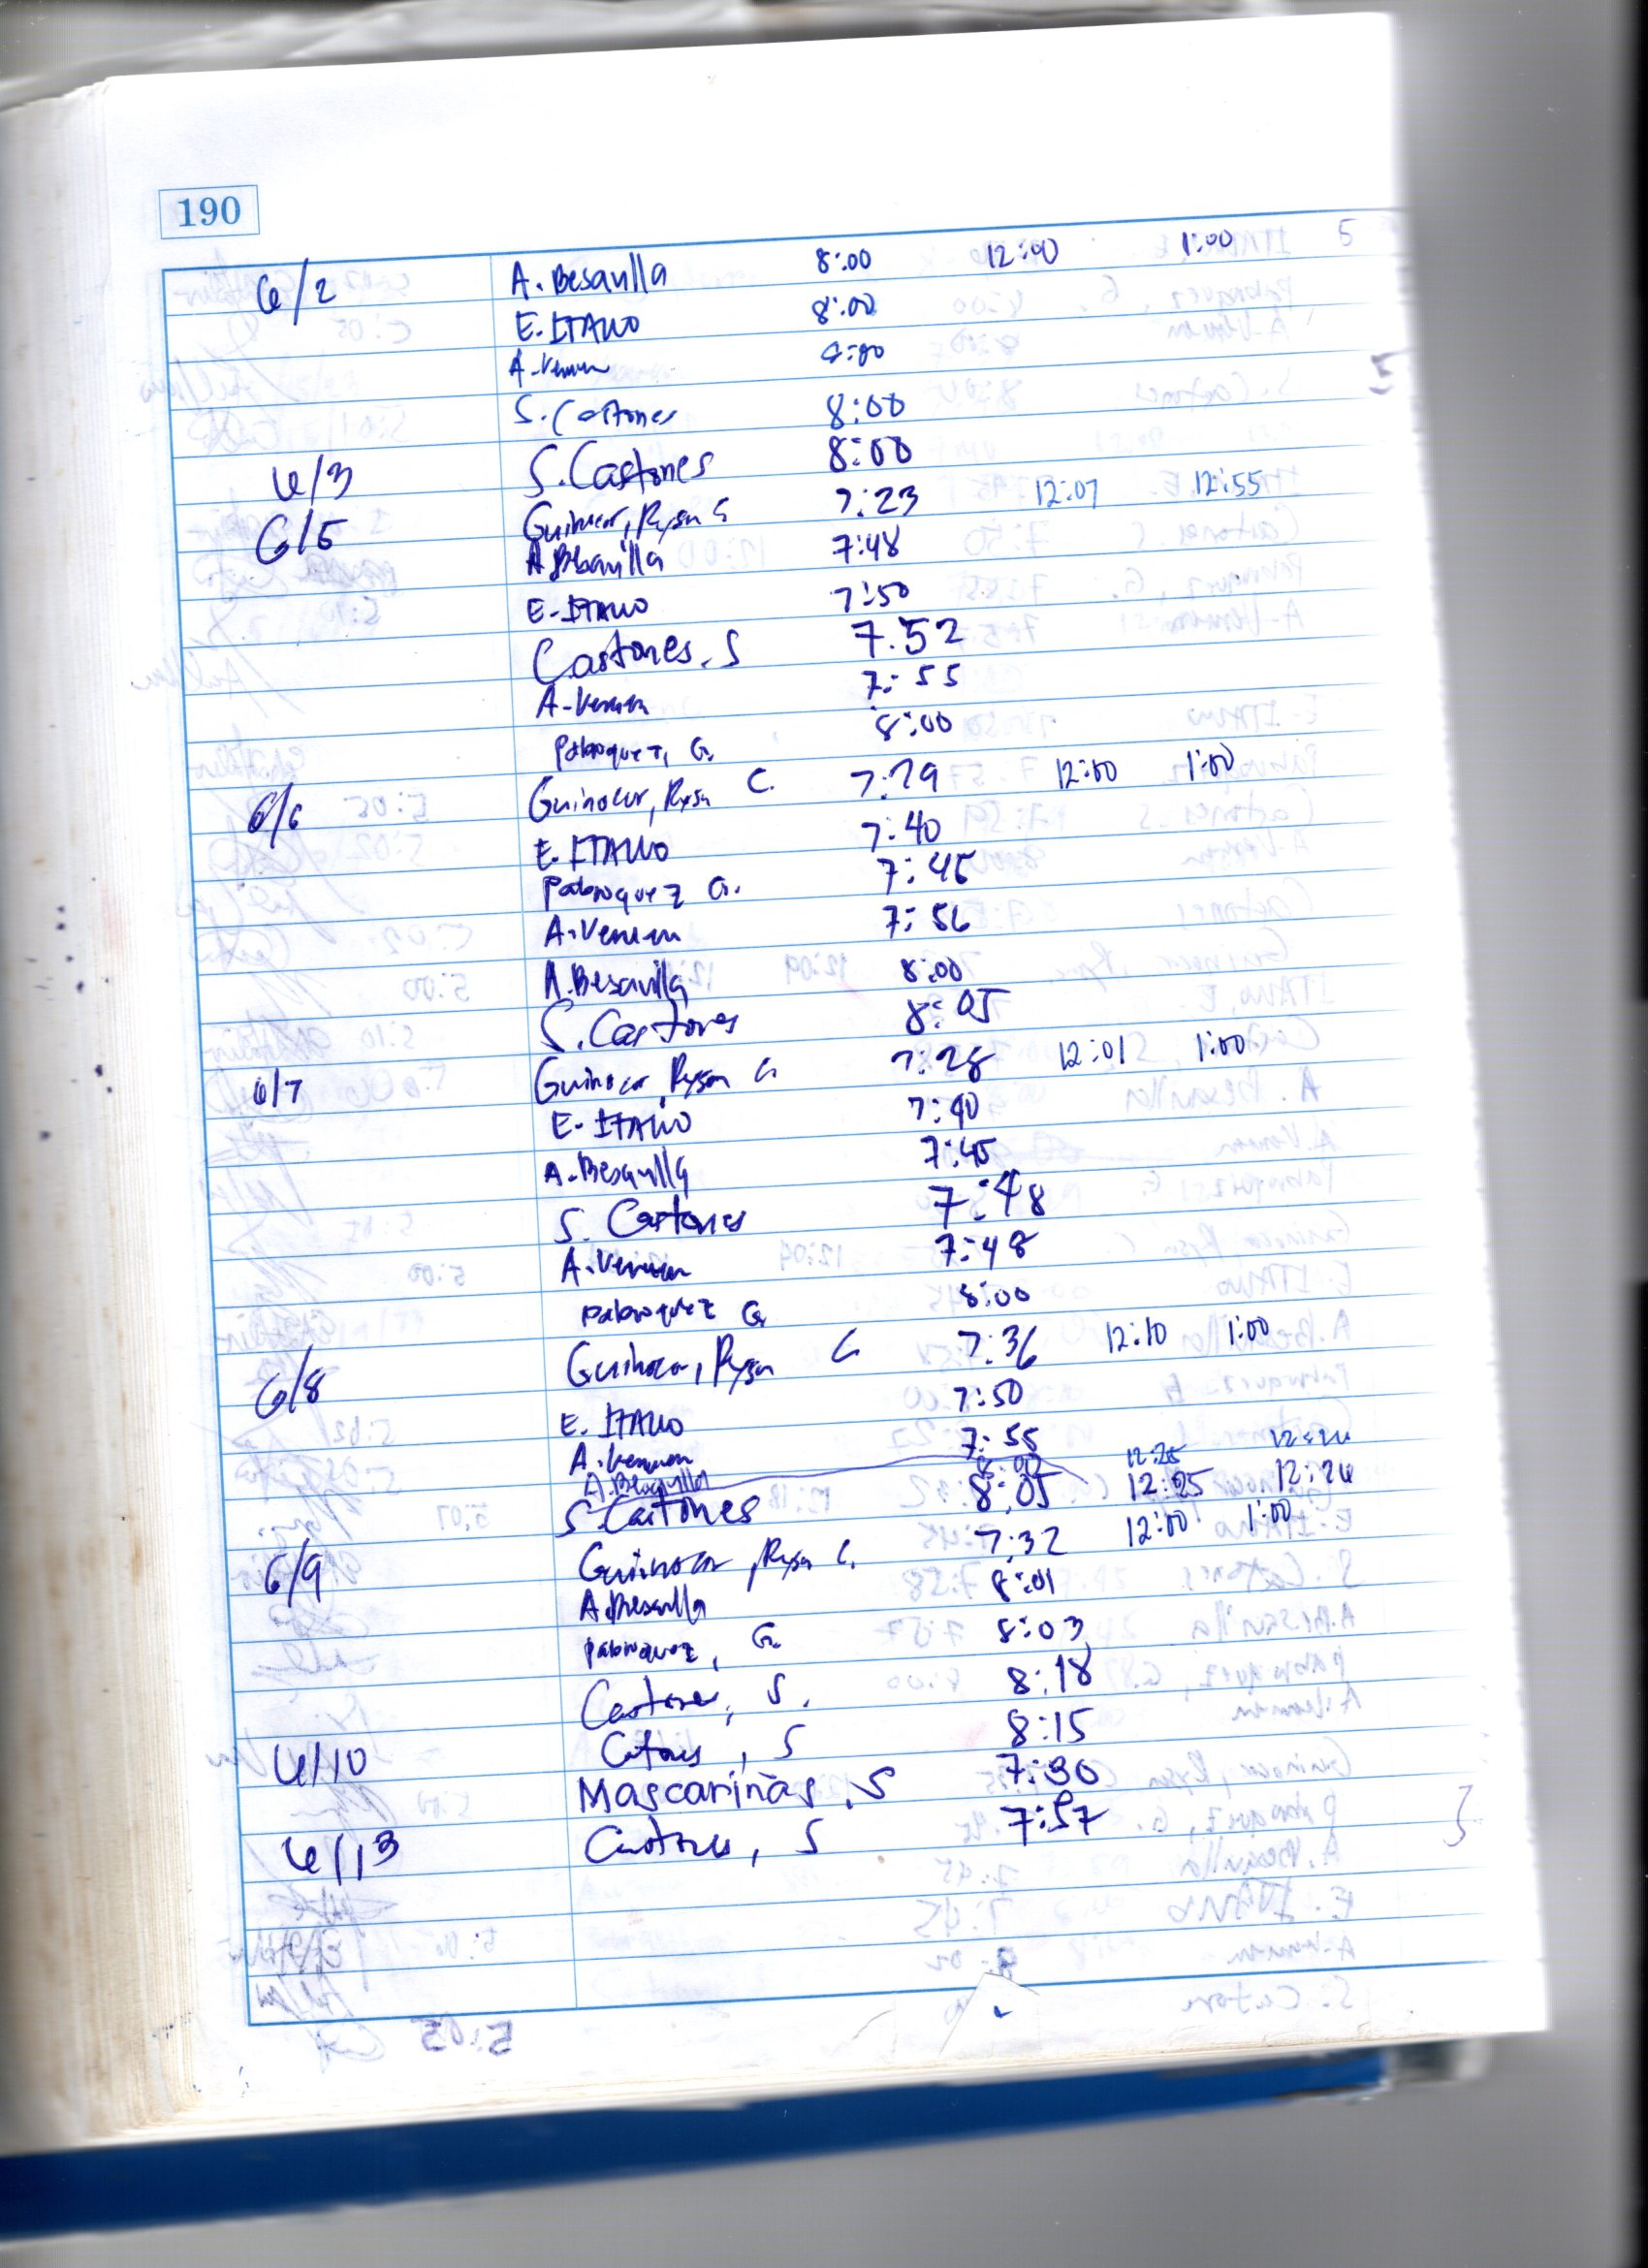 190
6/2 A. Besavilla 8:00 12:00 1:00 5
E. ITALIO 8:00
A. Veman 8:00
S. Castones 8:00
6/3 S. Castones 8:00
6/5 Guinocor, Rysa C 7:23 12:07 12:55
A Besavilla 7:48
E. ITALIO 7:50
Castones, S 7:52
A. Veman 7:55
Pabroquez, G. 8:00
6/6 Guinocor, Rysa C. 7:29 12:00 1:00
E. ITALIO 7:40
Pabroquez G. 7:45
A. Veman 7:56
A. Besavilla 8:00
S. Castones 8:05
6/7 Guinocor Rysa C. 7:28 12:01 1:00
E. ITALIO 7:40
A. Besavilla 7:45
S. Castones 7:48
A. Veman 7:48
Pabroquez G 8:00
6/8 Guinocor, Rysa C 7:36 12:10 1:00
E. ITALIO 7:50
A. Veman 7:55
A. Besavilla 8:00 12:25
S. Castones 8:05 12:25 12:26
6/9 Guinocor, Rysa C. 7:32 12:00 1:00
A. Besavilla 8:01
Pabroquez, G. 8:03
Castones, S. 8:18
6/10 Castones, S 8:15
Mascariñas, S 7:30
6/13 Castones, S 7:57